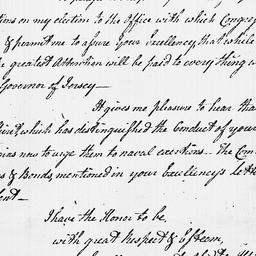 ions on my election to the Office with which Congre
& permit me to assure your Excellency, that while
he greatest Attention will be paid to every thing w
Governor of Jersey—
It gives me pleasure to hear tha
Spirit which has distinguished the Conduct of your
ins now to urge them to naval exertions— The Com
s & Bonds, mentioned in your Excellency's Lett
ent—
I have the Honor to be,
with great Respect & Esteem,